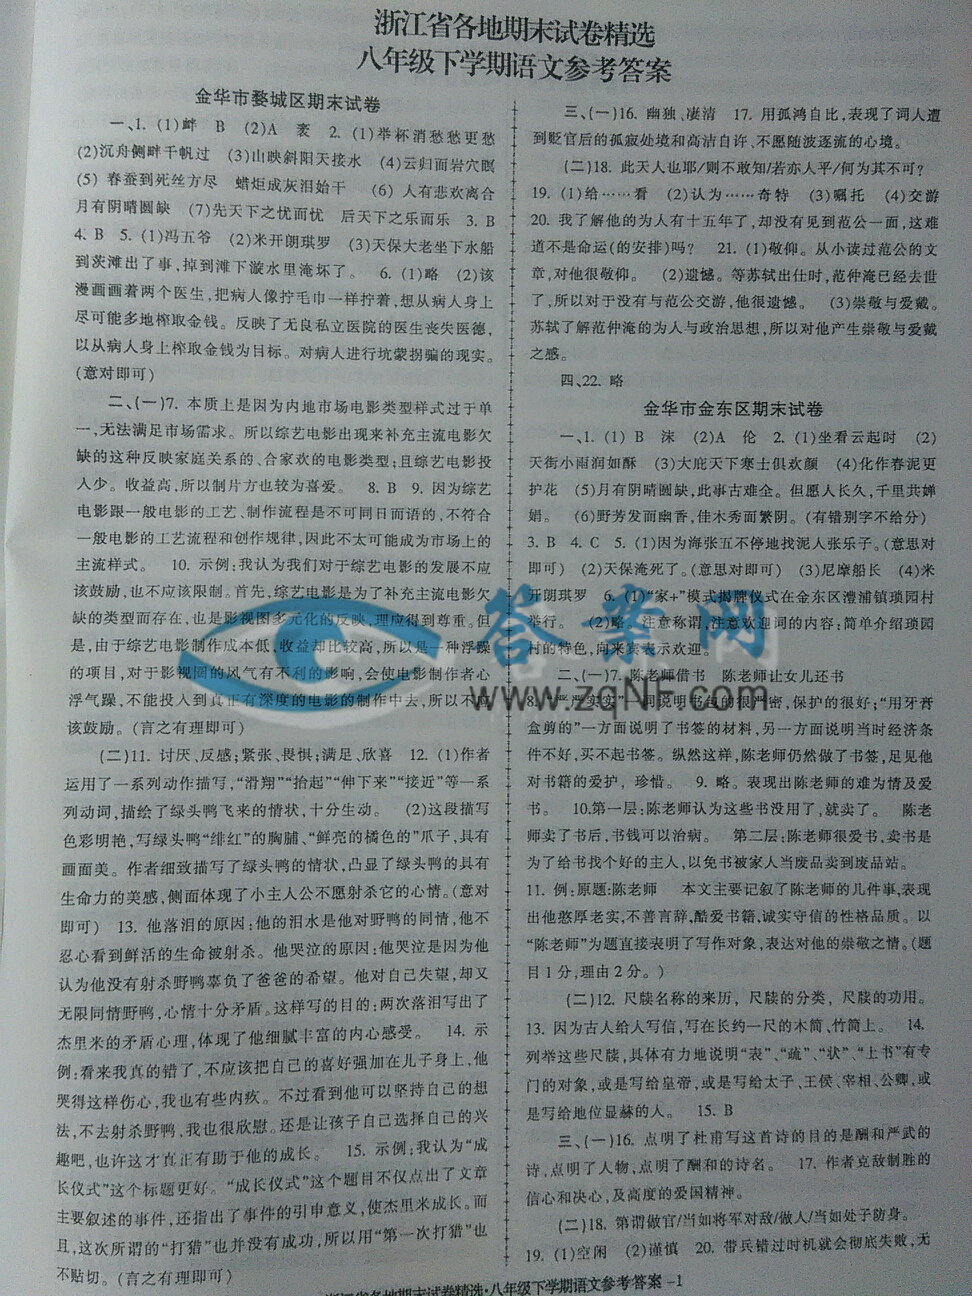 浙江省各地期末试卷精选
八年级下学期语文参考答案
金华市婺城区期末试卷
一、1. (1)衅 B (2)A 亵 2. (1)举杯消愁愁更愁
(2)沉舟侧畔千帆过 (3)山映斜阳天接水 (4)云归而岩穴暝
(5) 春蚕到死丝方尽 蜡炬成灰泪始干 (6) 人有悲欢离合
月有阴晴圆缺 (7)先天下之忧而忧 后天下之乐而乐 3. B
4. B 5. (1)冯五爷 (2)米开朗琪罗 (3)天保大老坐下水船
到茨滩出了事,掉到滩下漩水里淹坏了。 6. (1)略 (2)该
漫画画着两个医生,把病人像拧毛巾一样拧着,想从病人身上
尽可能多地榨取金钱。反映了无良私立医院的医生丧失医德,
以从病人身上榨取金钱为目标。对病人进行坑蒙拐骗的现实。
(意对即可)
二、(一)7. 本质上是因为内地市场电影类型样式过于单
一,无法满足市场需求。所以综艺电影出现来补充主流电影欠
缺的这种反映家庭关系的、合家欢的电影类型;且综艺电影投
入少。收益高,所以制片方也较为喜爱。 8. B 9. 因为综艺
电影跟一般电影的工艺、制作流程是不可同日而语的,不符合
一般电影的工艺流程和创作规律,因此不太可能成为市场上的
主流样式。 10. 示例:我认为我们对于综艺电影的发展不应
该鼓励,也不应该限制。首先,综艺电影是为了补充主流电影欠
缺的类型而存在,也是影视图多元化的反映,理应得到尊重。但
是,由于综艺电影制作成本低,收益却比较高,所以是一种浮躁
的项目,对于影视圈的风气有不利的影响,会使电影制作者心
浮气躁,不能投入到真正有深度的电影的制作中去,所以不应
该鼓励。(言之有理即可)
(二)11. 讨厌、反感;紧张、畏惧;满足、欣喜 12. (1)作者
运用了一系列动作描写,“滑翔”“抬起”“伸下来”“接近”等一系
列动词,描绘了绿头鸭飞来的情状,十分生动。 (2)这段描写
色彩明艳,写绿头鸭“绯红”的胸脯、“鲜亮的橘色的”爪子,具有
画面美。作者细致描写了绿头鸭的情状,凸显了绿头鸭的具有
生命力的美感,侧面体现了小主人公不愿射杀它的心情。(意对
即可) 13. 他落泪的原因:他的泪水是他对野鸭的同情,他不
忍心看到鲜活的生命被射杀。他哭泣的原因:他哭泣是因为他
认为他没有射杀野鸭辜负了爸爸的希望。他对自己失望,却又
无限同情野鸭,心情十分矛盾。这样写的目的:两次落泪写出了
杰里米的矛盾心理,体现了他细腻丰富的内心感受。 14. 示
例:看来我真的错了,不应该把自己的喜好强加在儿子身上,他
哭得这样伤心,我也有些内疚。不过看到他可以坚持自己的想
法,不去射杀野鸭,我也很欣慰。还是让孩子自己选择自己的兴
趣吧,也许这才真正有助于他的成长。 15. 示例:我认为“成
长仪式”这个标题更好。“成长仪式”这个题目不仅点出了文章
主要叙述的事件,还指出了事件的引申意义,使杰里米成长。而
且,这次所谓的“打猎”也并没有成功,所以用“第一次打猎”也
不贴切。(言之有理即可)
三、(一)16. 幽独、凄清 17. 用孤鸿自比,表现了词人遭
到贬官后的孤寂处境和高洁自许、不愿随波逐流的心境。
(二)18. 此天人也耶/则不敢知/若亦人平/何为其不可?
19. (1)给……看 (2)认为……奇特 (3)嘱托 (4)交游
20. 我了解他的为人有十五年了,却没有见到范公一面,这难
道不是命运(的安排)吗? 21. (1)敬仰。从小读过范公的文
章,对他很敬仰。 (2)遗憾。等苏轼出仕时,范仲淹已经去世
了,所以对于没有与范公交游,他很遗憾。 (3)崇敬与爱戴。
苏轼了解范仲淹的为人与政治思想,所以对他产生崇敬与爱戴
之感。
四、22. 略
金华市金东区期末试卷
一、1. (1) B 沫 (2)A 伦 2. (1)坐看云起时 (2)
天街小雨润如酥 (3)大庇天下寒士俱欢颜 (4)化作春泥更
护花 (5)月有阴晴圆缺,此事古难全。但愿人长久,千里共婵
娟。 (6)野芳发而幽香,佳木秀而繁阴。(有错别字不给分)
3. B 4. C 5. (1)因为海张五不停地找泥人张乐子。(意思对
即可) (2)天保淹死了。(意思对即可) (3)尼摩船长 (4)米
开朗琪罗 6. (1)“家+”模式揭牌仪式在金东区澧浦镇琐园村
举行。 (2)略。注意称谓,注意欢迎词的内容:简单介绍琐园
村的特色,向来宾表示欢迎。
二、(一)7. 陈老师借书 陈老师让女儿还书
8. “严严实实”一词说明书包的很严密,保护的很好;“用牙膏
盒剪的”一方面说明了书签的材料,另一方面说明当时经济条
件不好,买不起书签。纵然这样,陈老师仍然做了书签,足见他
对书籍的爱护，珍惜。 9. 略。表现出陈老师的难为情及爱
书。 10.第一层:陈老师认为这些书没用了,就卖了。 陈老
师卖了书后,书钱可以治病。 第二层:陈老师很爱书,卖书是
为了给书找个好的主人,以免书被家人当废品卖到废品站。
11. 例:原题:陈老师 本文主要记叙了陈老师的几件事,表现
出他憨厚老实,不善言辞,酷爱书籍,诚实守信的性格品质。以
“陈老师”为题直接表明了写作对象,表达对他的崇敬之情。(题
目1分,理由2分。)
(二)12. 尺牍名称的来历，尺牍的分类，尺牍的功用。
13. 因为古人给人写信,写在长约一尺的木简、竹简上。 14.
列举这些尺牍,具体有力地说明“表”、“疏”、“状”、“上书”有专
门的对象,或是写给皇帝,或是写给太子、王侯、宰相、公卿,或
是写给地位显赫的人。 15. B
三、(一)16. 点明了杜甫写这首诗的目的是酬和严武的
诗,点明了人物,点明了酬和的诗名。 17. 作者克敌制胜的
信心和决心,及高度的爱国精神。
(二)18. 第谓做官/当如将军对敌/做人/当如处子防身。
19. (1)空闲 (2)谨慎 20. 带兵错过时机就会彻底失败,无
浙江省各地期末试卷精选·八年级下学期语文参考答案 -1
答案网
www.zqNF.com